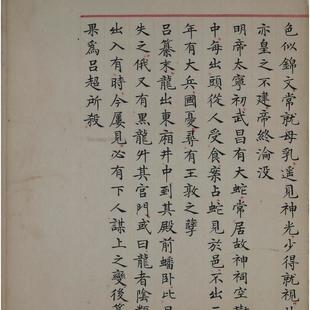 色似錦文常就母乳遥見神光少得就視
亦皇之不建帝終淪没
明帝太寧初武昌有大蛇常居故神祠空樹
中每出頭從人受食案占蛇見於邑不出三
年有大兵國憂尋有王敦之孽
吕纂末龍出東廂井中到其殿前蟠卧比旦
失之俄又有黑龍升其宫門或曰龍者陰類
出入有時今屢見必有下人謀上之變後纂
果爲吕超所殺